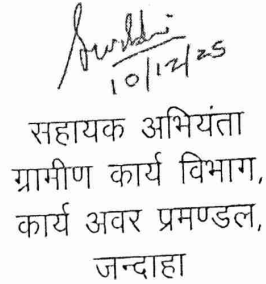 10/12/25
सहायक अभियंता
ग्रामीण कार्य विभाग,
कार्य अवर प्रमण्डल,
जन्दाहा